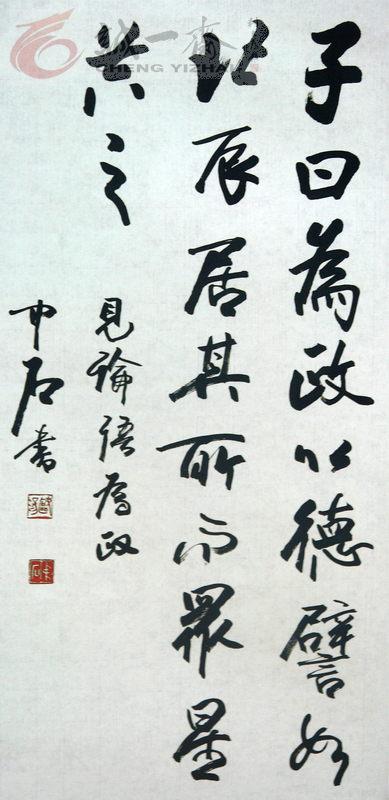 子曰為政以德譬如
北辰居其所而眾星
共之
見論語為政
中石書
誠一齋
CHENG YIZHAI